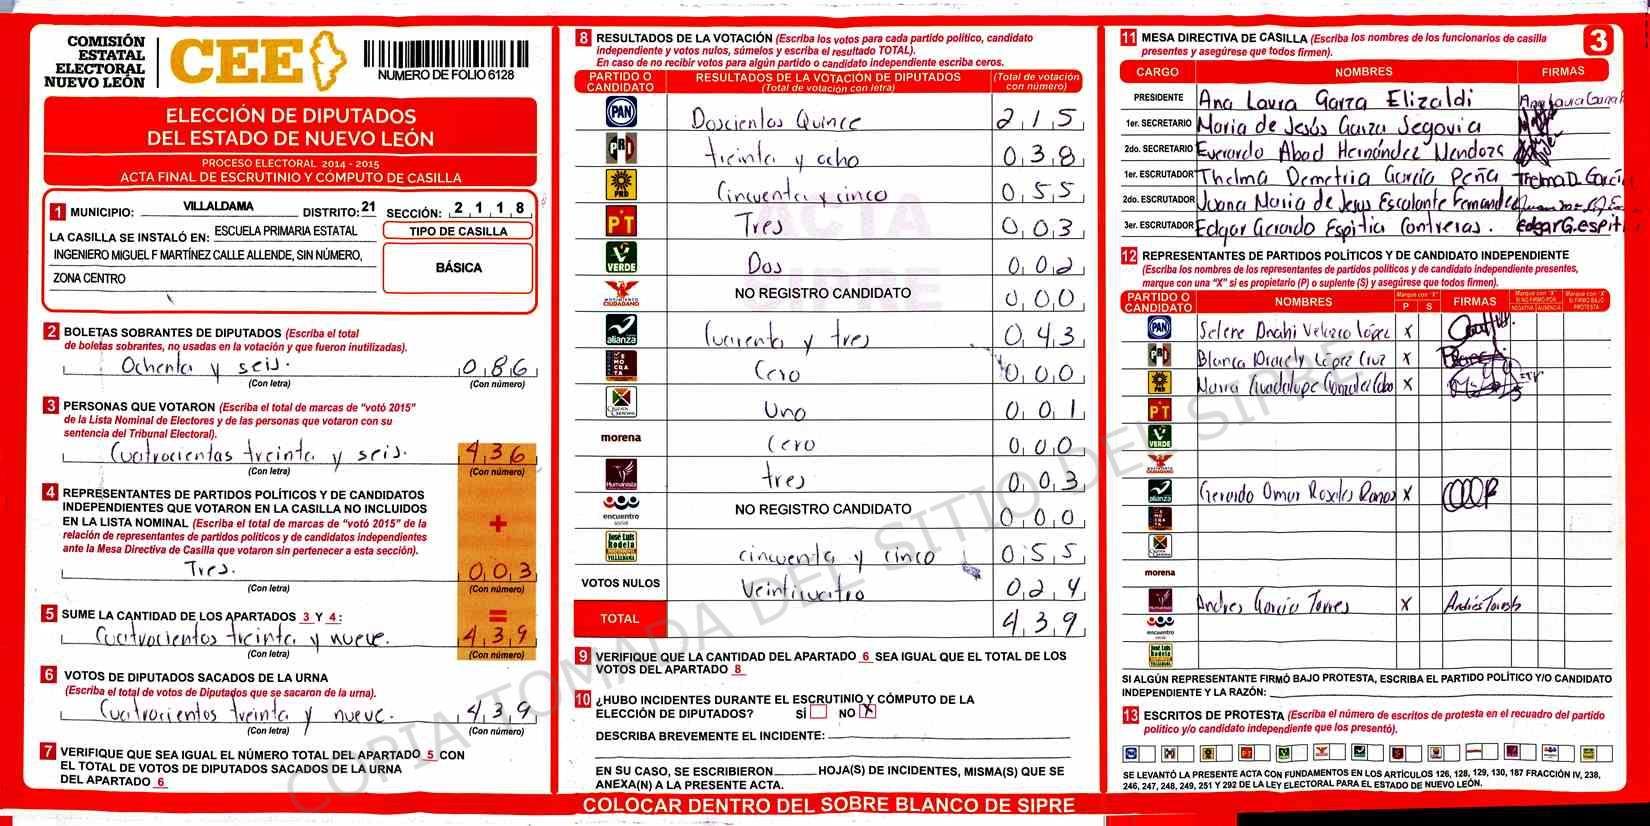 COMISIÓN
ESTATAL
ELECTORAL
NUEVO LEÓN
CEE
NUMERO DE FOLIO 6128
ELECCIÓN DE DIPUTADOS
DEL ESTADO DE NUEVO LEÓN
PROCESO ELECTORAL 2014 - 2015
ACTA FINAL DE ESCRUTINIO Y CÓMPUTO DE CASILLA
1 MUNICIPIO: VILLALDAMA DISTRITO: 21 SECCIÓN: 2 1 1 8
LA CASILLA SE INSTALÓ EN: ESCUELA PRIMARIA ESTATAL
INGENIERO MIGUEL F MARTÍNEZ CALLE ALLENDE, SIN NÚMERO,
ZONA CENTRO
TIPO DE CASILLA
BÁSICA
2 BOLETAS SOBRANTES DE DIPUTADOS (Escriba el total
de boletas sobrantes, no usadas en la votación y que fueron inutilizadas).
Ochenta y seis. 0 8 6
(Con letra) (Con número)
3 PERSONAS QUE VOTARON (Escriba el total de marcas de "votó 2015"
de la Lista Nominal de Electores y de las personas que votaron con su
sentencia del Tribunal Electoral).
Cuatrocientas treinta y seis. 4 3 6
(Con letra) (Con número)
4 REPRESENTANTES DE PARTIDOS POLÍTICOS Y DE CANDIDATOS
INDEPENDIENTES QUE VOTARON EN LA CASILLA NO INCLUIDOS
EN LA LISTA NOMINAL (Escriba el total de marcas de "votó 2015" de la
relación de representantes de partidos políticos y de candidatos independientes
ante la Mesa Directiva de Casilla que votaron sin pertenecer a esta sección).
+
Tres. 0 0 3
(Con letra) (Con número)
=
5 SUME LA CANTIDAD DE LOS APARTADOS 3 Y 4:
Cuatrocientos treinta y nueve. 4 3 9
(Con letra) (Con número)
6 VOTOS DE DIPUTADOS SACADOS DE LA URNA
(Escriba el total de votos de Diputados que se sacaron de la urna).
Cuatrocientos treinta y nueve. 4 3 9
(Con letra) (Con número)
7 VERIFIQUE QUE SEA IGUAL EL NÚMERO TOTAL DEL APARTADO 5 CON
EL TOTAL DE VOTOS DE DIPUTADOS SACADOS DE LA URNA
DEL APARTADO 6
8 RESULTADOS DE LA VOTACIÓN (Escriba los votos para cada partido político, candidato
independiente y votos nulos, súmelos y escriba el resultado TOTAL).
En caso de no recibir votos para algún partido o candidato independiente escriba ceros.
PARTIDO O CANDIDATO
RESULTADOS DE LA VOTACIÓN DE DIPUTADOS
(Total de votación con letra)
(Total de votación con número)
PAN Doscientos Quince 2 1 5
PRI treinta y ocho 0 3 8
PRD Cincuenta y cinco 0 5 5
PT Tres 0 0 3
VERDE Dos 0 0 2
MOVIMIENTO CIUDADANO NO REGISTRO CANDIDATO 0 0 0
alianza Cuarenta y tres 0 4 3
DEMOCRATA Cero 0 0 0
Uno 0 0 1
morena Cero 0 0 0
Humanista tres 0 0 3
encuentro social NO REGISTRO CANDIDATO 0 0 0
José Luis Rodela VILLALDAMA cincuenta y cinco 0 5 5
VOTOS NULOS Veinticuatro 0 2 4
TOTAL 4 3 9
9 VERIFIQUE QUE LA CANTIDAD DEL APARTADO 6 SEA IGUAL QUE EL TOTAL DE LOS
VOTOS DEL APARTADO 8
10 ¿HUBO INCIDENTES DURANTE EL ESCRUTINIO Y CÓMPUTO DE LA
ELECCIÓN DE DIPUTADOS? SÍ NO X
DESCRIBA BREVEMENTE EL INCIDENTE:
EN SU CASO, SE ESCRIBIERON HOJA(S) DE INCIDENTES, MISMA(S) QUE SE
ANEXA(N) A LA PRESENTE ACTA.
COLOCAR DENTRO DEL SOBRE BLANCO DE SIPRE
ACTA
SIPRE
COPIA TOMADA DEL SITIO DEL SIPRE
3
11 MESA DIRECTIVA DE CASILLA (Escriba los nombres de los funcionarios de casilla
presentes y asegúrese que todos firmen).
CARGO NOMBRES FIRMAS
PRESIDENTE Ana Laura Garza Elizaldi
1er. SECRETARIO Maria de Jesús Garza Segovia
2do. SECRETARIO Everardo Abad Hernández Mendoza
1er. ESCRUTADOR Thelma Demetria García Peña Thelma D. García
2do. ESCRUTADOR Juana Maria de Jesus Escalante Fernandez
3er. ESCRUTADOR Edgar Gerardo Espitia Contreras. Edgar G. espiti
12 REPRESENTANTES DE PARTIDOS POLÍTICOS Y DE CANDIDATO INDEPENDIENTE
(Escriba los nombres de los representantes de partidos políticos y de candidato independiente presentes,
marque con una "X" si es propietario (P) o suplente (S) y asegúrese que todos firmen).
PARTIDO O CANDIDATO NOMBRES Marque con "X" P S FIRMAS Marque con "X" SI NO FIRMÓ POR: NEGATIVA AUSENCIA Marque con "X" SI FIRMÓ BAJO PROTESTA
PAN Selene Anahi Velazco López X
PRI Blanca Aracely López Cruz X
PRD Maria Guadalupe Gonzalez Cobo X
PT
VERDE
alianza Gerardo Omar Rosales Ramos X
morena
Andres Garcia Torres X Andrés Torres
encuentro social
SI ALGÚN REPRESENTANTE FIRMÓ BAJO PROTESTA, ESCRIBA EL PARTIDO POLÍTICO Y/O CANDIDATO
INDEPENDIENTE Y LA RAZÓN:
13 ESCRITOS DE PROTESTA (Escriba el número de escritos de protesta en el recuadro del partido
político y/o candidato independiente que los presentó).
SE LEVANTÓ LA PRESENTE ACTA CON FUNDAMENTOS EN LOS ARTÍCULOS 126, 128, 129, 130, 187 FRACCIÓN IV, 238,
246, 247, 248, 249, 251 Y 292 DE LA LEY ELECTORAL PARA EL ESTADO DE NUEVO LEÓN.